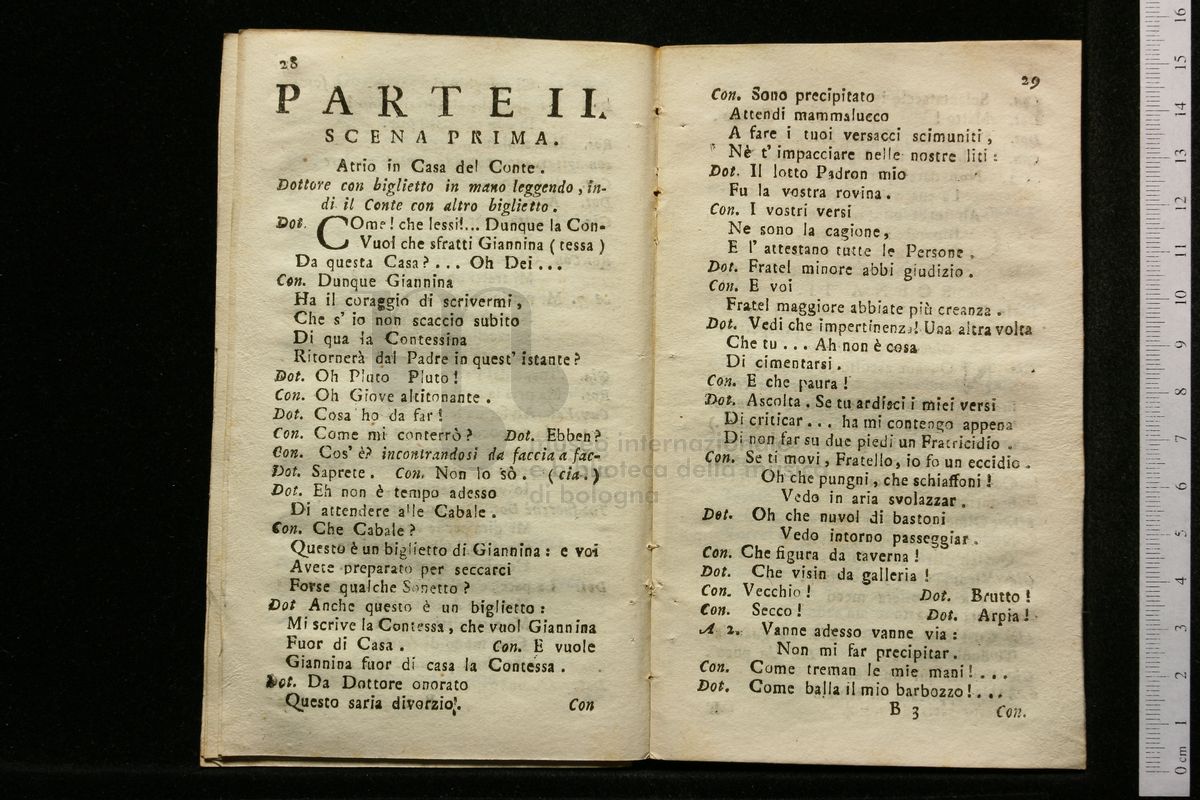 28
PARTE II.
SCENA PRIMA.
Atrio in Casa del Conte.
Dottore con biglietto in mano leggendo, in-
di il Conte con altro biglietto.
Dot. COme! che lessi!... Dunque la Con-
Vuol che sfratti Giannina (tessa)
Da questa Casa?... Oh Dei...
Con. Dunque Giannina
Ha il coraggio di scrivermi,
Che s' io non scaccio subito
Di qua la Contessina
Ritornerà dal Padre in quest' istante?
Dot. Oh Pluto Pluto!
Con. Oh Giove altitonante.
Dot. Cosa ho da far!
Con. Come mi conterrò? Dot. Ebben?
Con. Cos' è? incontrandosi da faccia a fac-
Dot. Saprete. Con. Non lo sò. (cia.)
Dot. Eh non è tempo adesso
Di attendere alle Cabale.
Con. Che Cabale?
Questo è un biglietto di Giannina: e voi
Avete preparato per seccarci
Forse qualche Sonetto?
Dot Anche questo è un biglietto:
Mi scrive la Contessa, che vuol Giannina
Fuor di Casa. Con. E vuole
Giannina fuor di casa la Contessa.
Dot. Da Dottore onorato
Questo saria divorzio!.
Con
29
Con. Sono precipitato
Attendi mammalucco
A fare i tuoi versacci scimuniti,
Nè t' impacciare nelle nostre liti:
Dot. Il lotto Padron mio
Fu la vostra rovina.
Con. I vostri versi
Ne sono la cagione,
E l' attestano tutte le Persone.
Dot. Fratel minore abbi giudizio.
Con. E voi
Fratel maggiore abbiate più creanza.
Dot. Vedi che impertinenza! Una altra volta
Che tu... Ah non è cosa
Di cimentarsi.
Con. E che paura!
Dot. Ascolta. Se tu ardisci i miei versi
Di criticar... ha mi contengo appena
Di non far su due piedi un Fratricidio.
Con. Se ti movi, Fratello, io fo un eccidio.
Oh che pungni, che schiaffoni!
Vedo in aria svolazzar.
Dot. Oh che nuvol di bastoni
Vedo intorno passeggiar.
Con. Che figura da taverna!
Dot. Che visin da galleria!
Con. Vecchio! Dot. Brutto!
Con. Secco! Dot. Arpia!
A 2. Vanne adesso vanne via:
Non mi far precipitar.
Con. Come treman le mie mani!...
Dot. Come balla il mio barbozzo!...
B 3
Con.
museo internazionale
e biblioteca della musica
di bologna
0 cm 1 2 3 4 5 6 7 8 9 10 11 12 13 14 15 16